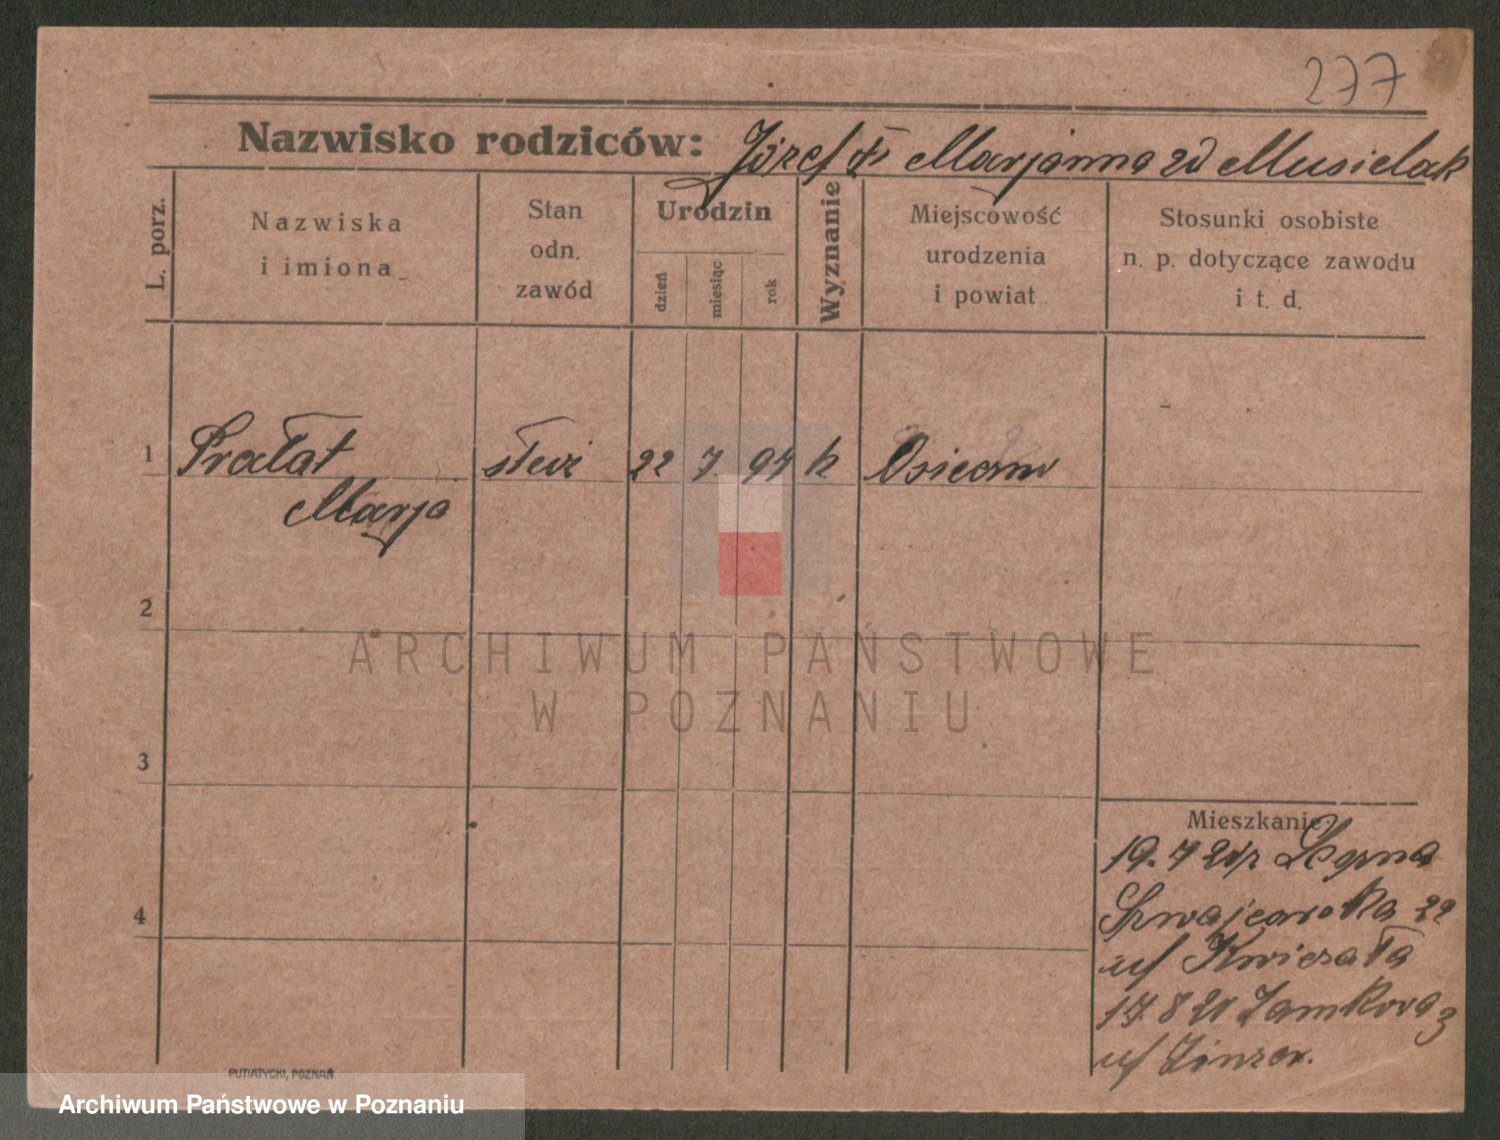 277
Nazwisko rodziców: Józef & Marjanna zd Musielak
L. porz.
Nazwiska
i imiona
Stan
odn.
zawód
Urodzin
dzień
miesiąc
rok
Wyznanie
Miejscowość
urodzenia
i powiat
Stosunki osobiste
n. p. dotyczące zawodu
i t. d.
1 Prałat służ 22 7 97 k Osieczno
Marja
2
ARCHIWUM PAŃSTWOWE
W POZNANIU
3
Mieszkanie:
19. 7 20
4
22
u/ Kwiczała
17 8 20 Zamkowa 3
u/
PUTIATYCKI, POZNAŃ
Archiwum Państwowe w Poznaniu